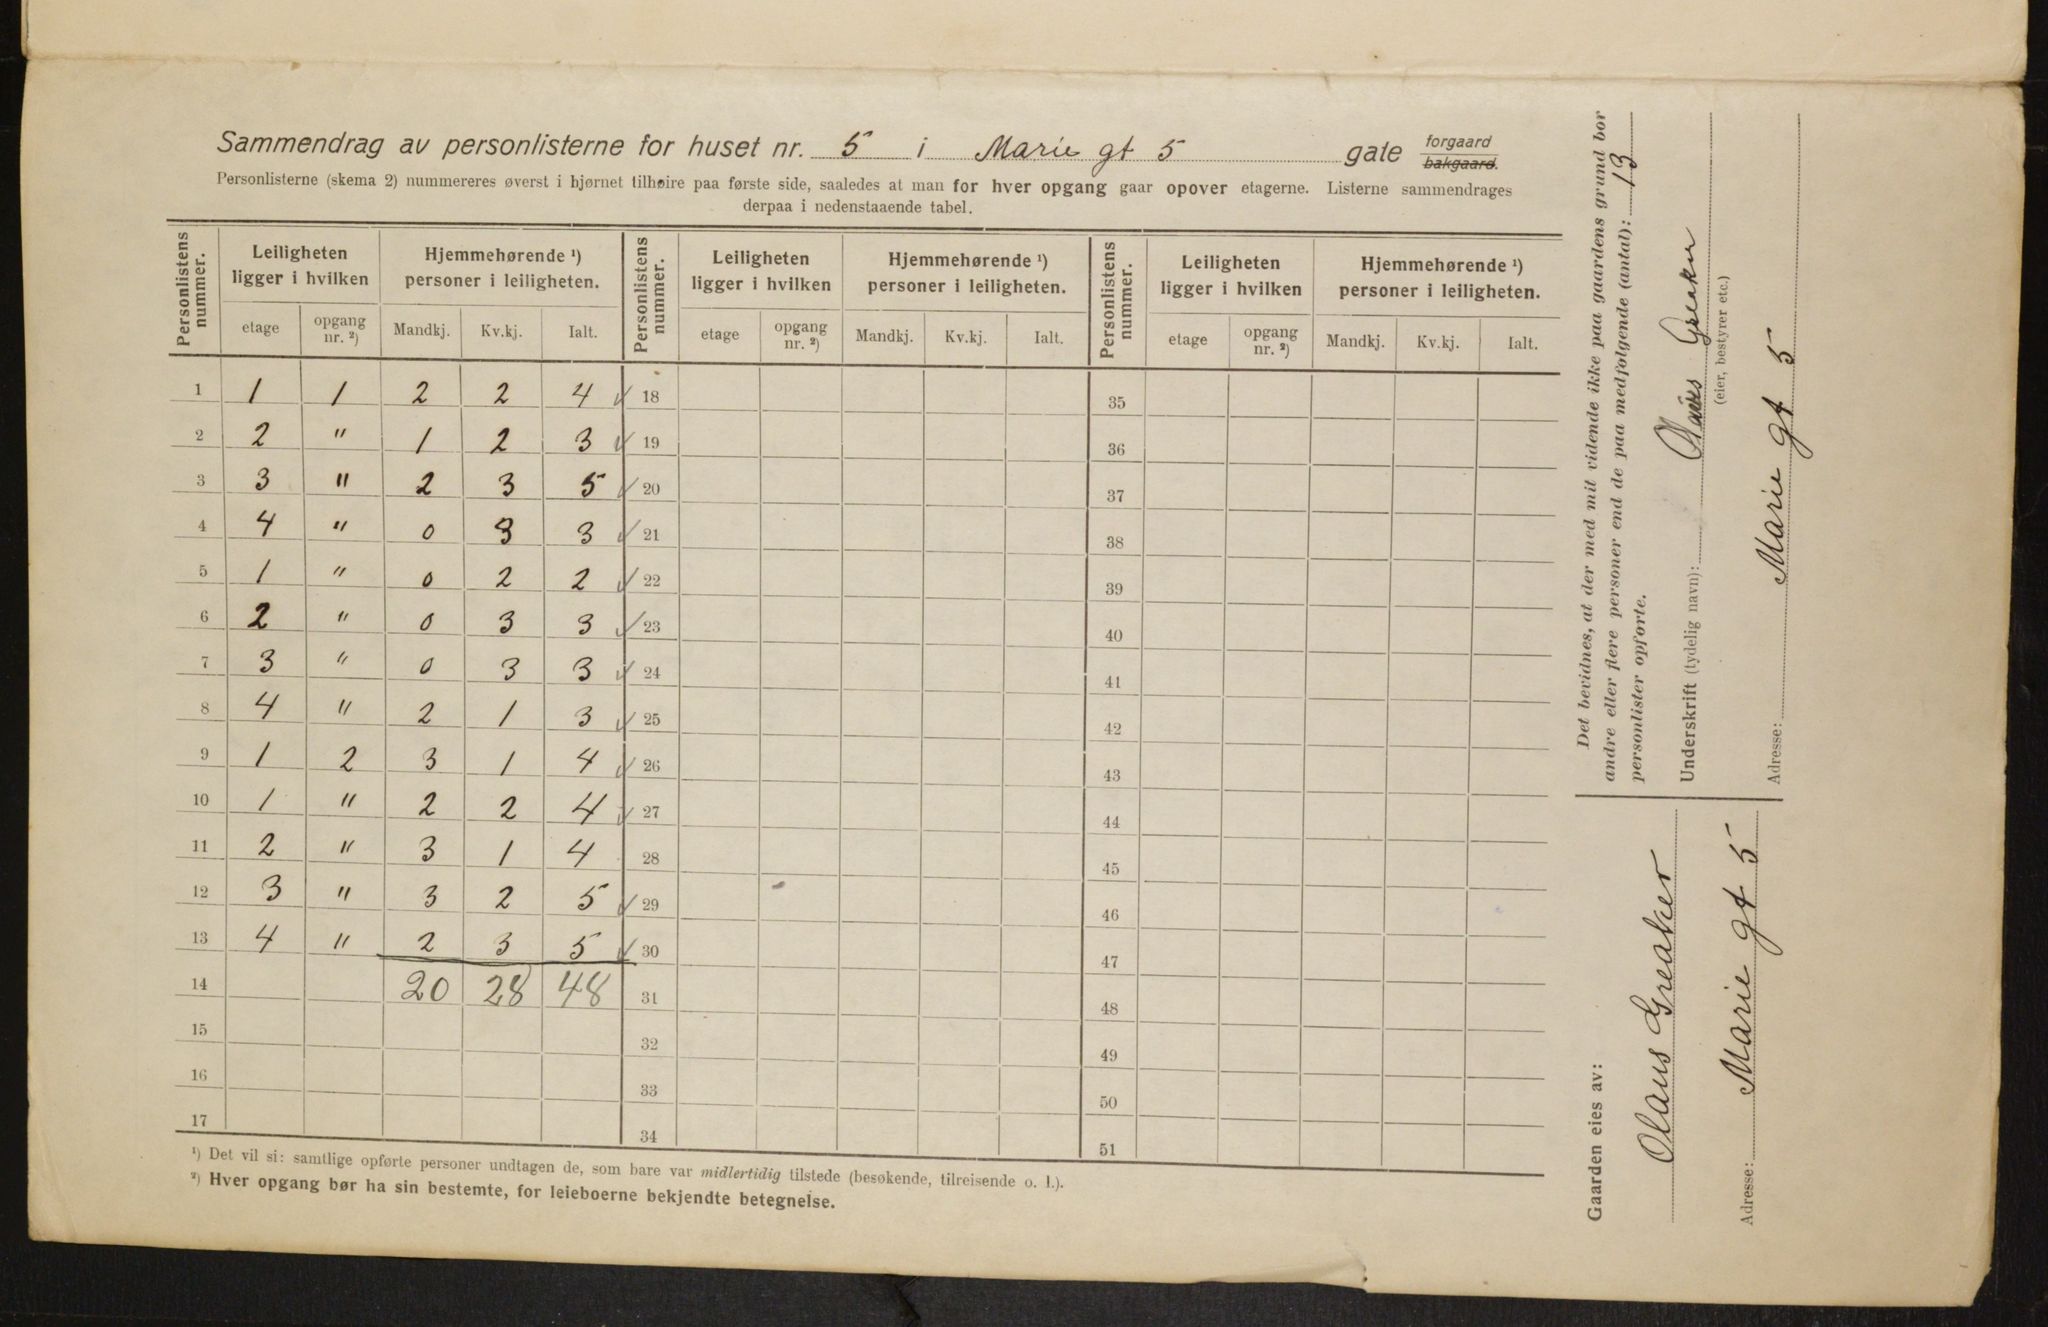 Sammendrag av personlisterne for huset nr. 5 i Marie gt 5 gate forgaard bakgaard.
Personlisterne (skema 2) nummereres øverst i hjørnet tilhøire paa første side, saaledes at man for hver opgang gaar opover etagerne. Listerne sammendrages
derpaa i nedenstaaende tabel.
Personlistens nummer. Leiligheten ligger i hvilken Hjemmehørende ¹) personer i leiligheten. Personlistens nummer. Leiligheten ligger i hvilken Hjemmehørende ¹) personer i leiligheten. Personlistens nummer. Leiligheten ligger i hvilken Hjemmehørende ¹) personer i leiligheten.
etage opgang nr. ²) Mandkj. Kv.kj. Ialt. etage opgang nr. ²) Mandkj. Kv.kj. Ialt. etage opgang nr. ²) Mandkj. Kv.kj. Ialt.
1 1 1 2 2 4 ✓ 18 35
2 2 " 1 2 3 ✓ 19 36
3 3 " 2 3 5 ✓ 20 37
4 4 " 0 3 3 ✓ 21 38
5 1 " 0 2 2 ✓ 22 39
6 2 " 0 3 3 ✓ 23 40
7 3 " 0 3 3 ✓ 24 41
8 4 " 2 1 3 ✓ 25 42
9 1 2 3 1 4 ✓ 26 43
10 1 " 2 2 4 ✓ 27 44
11 2 " 3 1 4 28 45
12 3 " 3 2 5 ✓ 29 46
13 4 " 2 3 5 ✓ 30 47
14 20 28 48 31 48
15 32 49
16 33 50
17 34 51
¹) Det vil si: samtlige opførte personer undtagen de, som bare var midlertidig tilstede (besøkende, tilreisende o. l.).
²) Hver opgang bør ha sin bestemte, for leieboerne bekjendte betegnelse.
Det bevidnes, at der med mit vidende ikke paa gaardens grund bor
andre eller flere personer end de paa medfølgende (antal): 13
personlister opførte.
Underskrift (tydelig navn): Olaus Greaker
(eier, bestyrer etc.)
Adresse: Marie gt 5
Gaarden eies av:
Olaus Greaker
Adresse: Marie gt 5